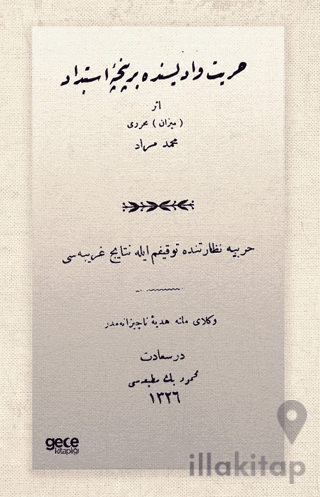 حریت وادیسنده بر پنچهٔ استبداد
اثر
( میزان ) محرری
محمد مراد
حربیه نظارتنده توقیفم ایله نتایج غریبه سی
وکلای ملته هدیهٔ ناچیزانه مدر
درسعادت
محمود بك مطبعه سی
١٣٢٦
gece
kitaplığı
illakitap